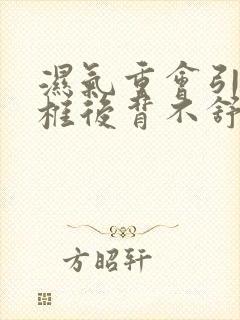 濕氣重會引
框後背不舒
方昭軒